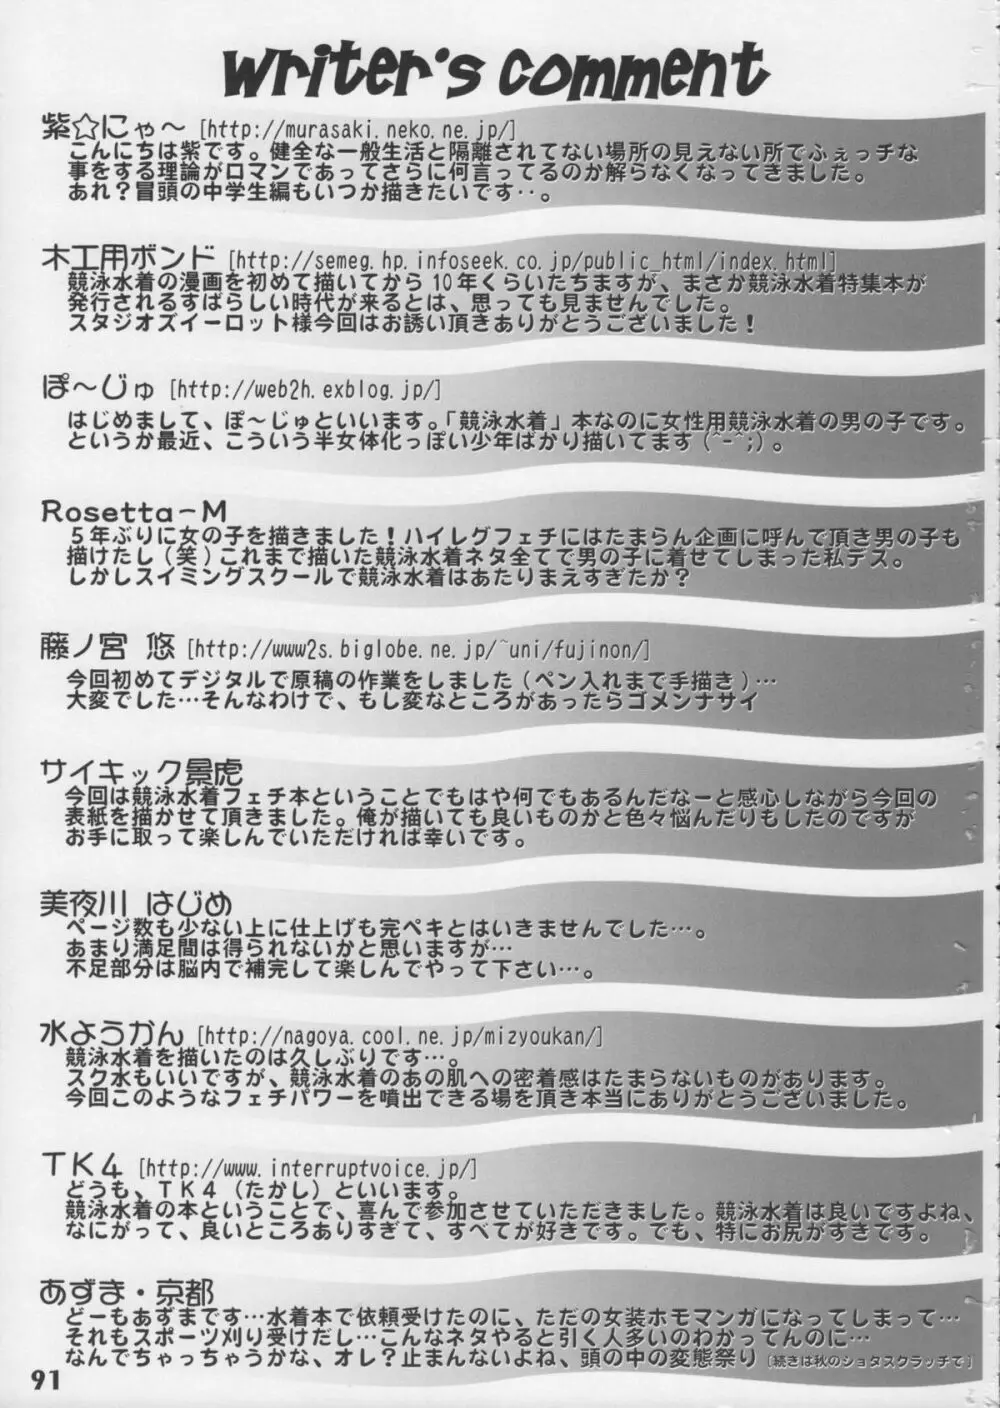 writer's comment
紫☆にゃ～ [http://murasaki.neko.ne.jp/]
こんにちは紫です。健全な一般生活と隔離されてない場所の見えない所でふぇっチな
事をする理論がロマンであってさらに何言ってるのか解らなくなってきました。
あれ？冒頭の中学生編もいつか描きたいです‥。
木工用ボンド [http://semeg.hp.infoseek.co.jp/public_html/index.html]
競泳水着の漫画を初めて描いてから10年くらいたちますが、まさか競泳水着特集本が
発行されるすばらしい時代が来るとは、思っても見ませんでした。
スタジオズイーロット様今回はお誘い頂きありがとうございました！
ぽ～じゅ [http://web2h.exblog.jp/]
はじめまして、ぽ～じゅといいます。「競泳水着」本なのに女性用競泳水着の男の子です。
というか最近、こういう半女体化っぽい少年ばかり描いてます(^-^;)。
Rosetta-M
５年ぶりに女の子を描きました！ハイレグフェチにはたまらん企画に呼んで頂き男の子も
描けたし(笑)これまで描いた競泳水着ネタ全てで男の子に着せてしまった私デス。
しかしスイミングスクールで競泳水着はあたりまえすぎたか？
藤ノ宮 悠 [http://www2s.biglobe.ne.jp/~uni/fujinon/]
今回初めてデジタルで原稿の作業をしました(ペン入れまで手描き)…
大変でした…そんなわけで、もし変なところがあったらゴメンナサイ
サイキック景虎
今回は競泳水着フェチ本ということでもはや何でもあるんだなーと感心しながら今回の
表紙を描かせて頂きました。俺が描いても良いものかと色々悩んだりもしたのですが
お手に取って楽しんでいただければ幸いです。
美夜川 はじめ
ページ数も少ない上に仕上げも完ペキとはいきませんでした…。
あまり満足間は得られないかと思いますが…
不足部分は脳内で補完して楽しんでやって下さい…。
水ようかん [http://nagoya.cool.ne.jp/mizyoukan/]
競泳水着を描いたのは久しぶりです…。
スク水もいいですが、競泳水着のあの肌への密着感はたまらないものがあります。
今回このようなフェチパワーを噴出できる場を頂き本当にありがとうございました。
ＴＫ４ [http://www.interruptvoice.jp/]
どうも、ＴＫ４（たかし）といいます。
競泳水着の本ということで、喜んで参加させていただきました。競泳水着は良いですよね、
なにがって、良いところありすぎて、すべてが好きです。でも、特にお尻がすきです。
あずま・京都
どーもあずまです…水着本で依頼受けたのに、ただの女装ホモマンガになってしまって…
それもスポーツ刈り受けだし…こんなネタやると引く人多いのわかってんのに…
なんでちゃっちゃうかな、オレ？止まんないよね、頭の中の変態祭り [続きは秋のショタスクラッチで]
91